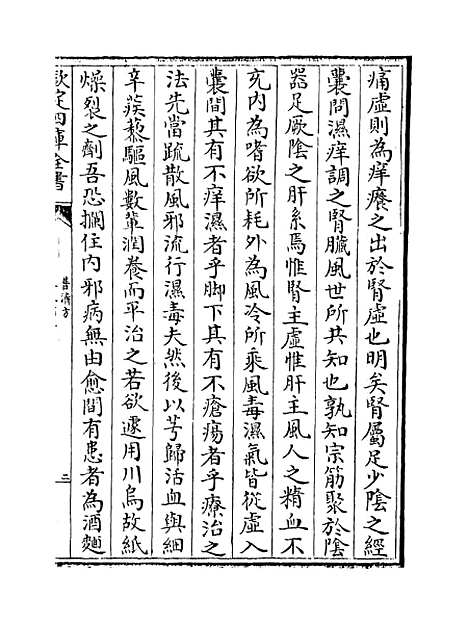 痛虛則為痒癢之出於腎虛也明矣腎屬足少陰之經
囊間濕痒謂之腎臟風世所共知也孰知宗筋聚於陰
器足厥陰之肝系焉惟腎主虛惟肝主風人之精血不
充内為嗜欲所耗外為風冷所乘風毒濕氣皆從虛入
囊間其有不痒濕者乎脚下其有不瘡瘍者乎療治之
法先當疏散風邪流行濕毒夫然後以芎歸活血與細
辛蒺藜驅風數軰潤養而平治之若欲遽用川烏故紙
燥裂之劑吾恐攔住内邪病無由愈間有患者為酒麵
欽定四庫全書
普濟方
三